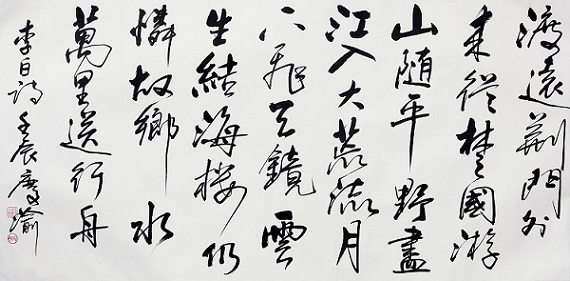 渡遠荆門外
来從楚國游
山随平野盡
江入大荒流月
下飛天鏡雲
生結海楼仍
憐故鄉水
萬里送行舟
李白詩壬辰渝